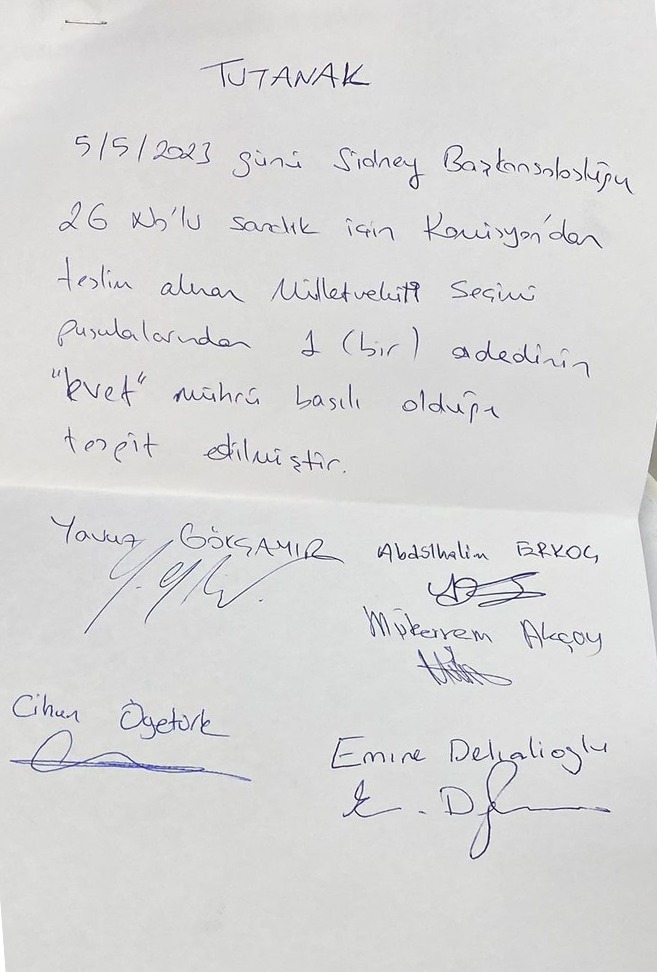 TUTANAK
5/5/2023 günü Sidney Başkonsolosluğu
26 No'lu sandık için Komisyon'dan
teslim alınan Milletvekili Seçimi
pusulalarından 1 (bir) adedinin
"Evet" mührü basılı olduğu
tespit edilmiştir.
Yavuz GÖKÇAMIR Abdülhalim ERKOÇ
Mükerrem Akçay
Cihan Ögetürk
Emine
E. D